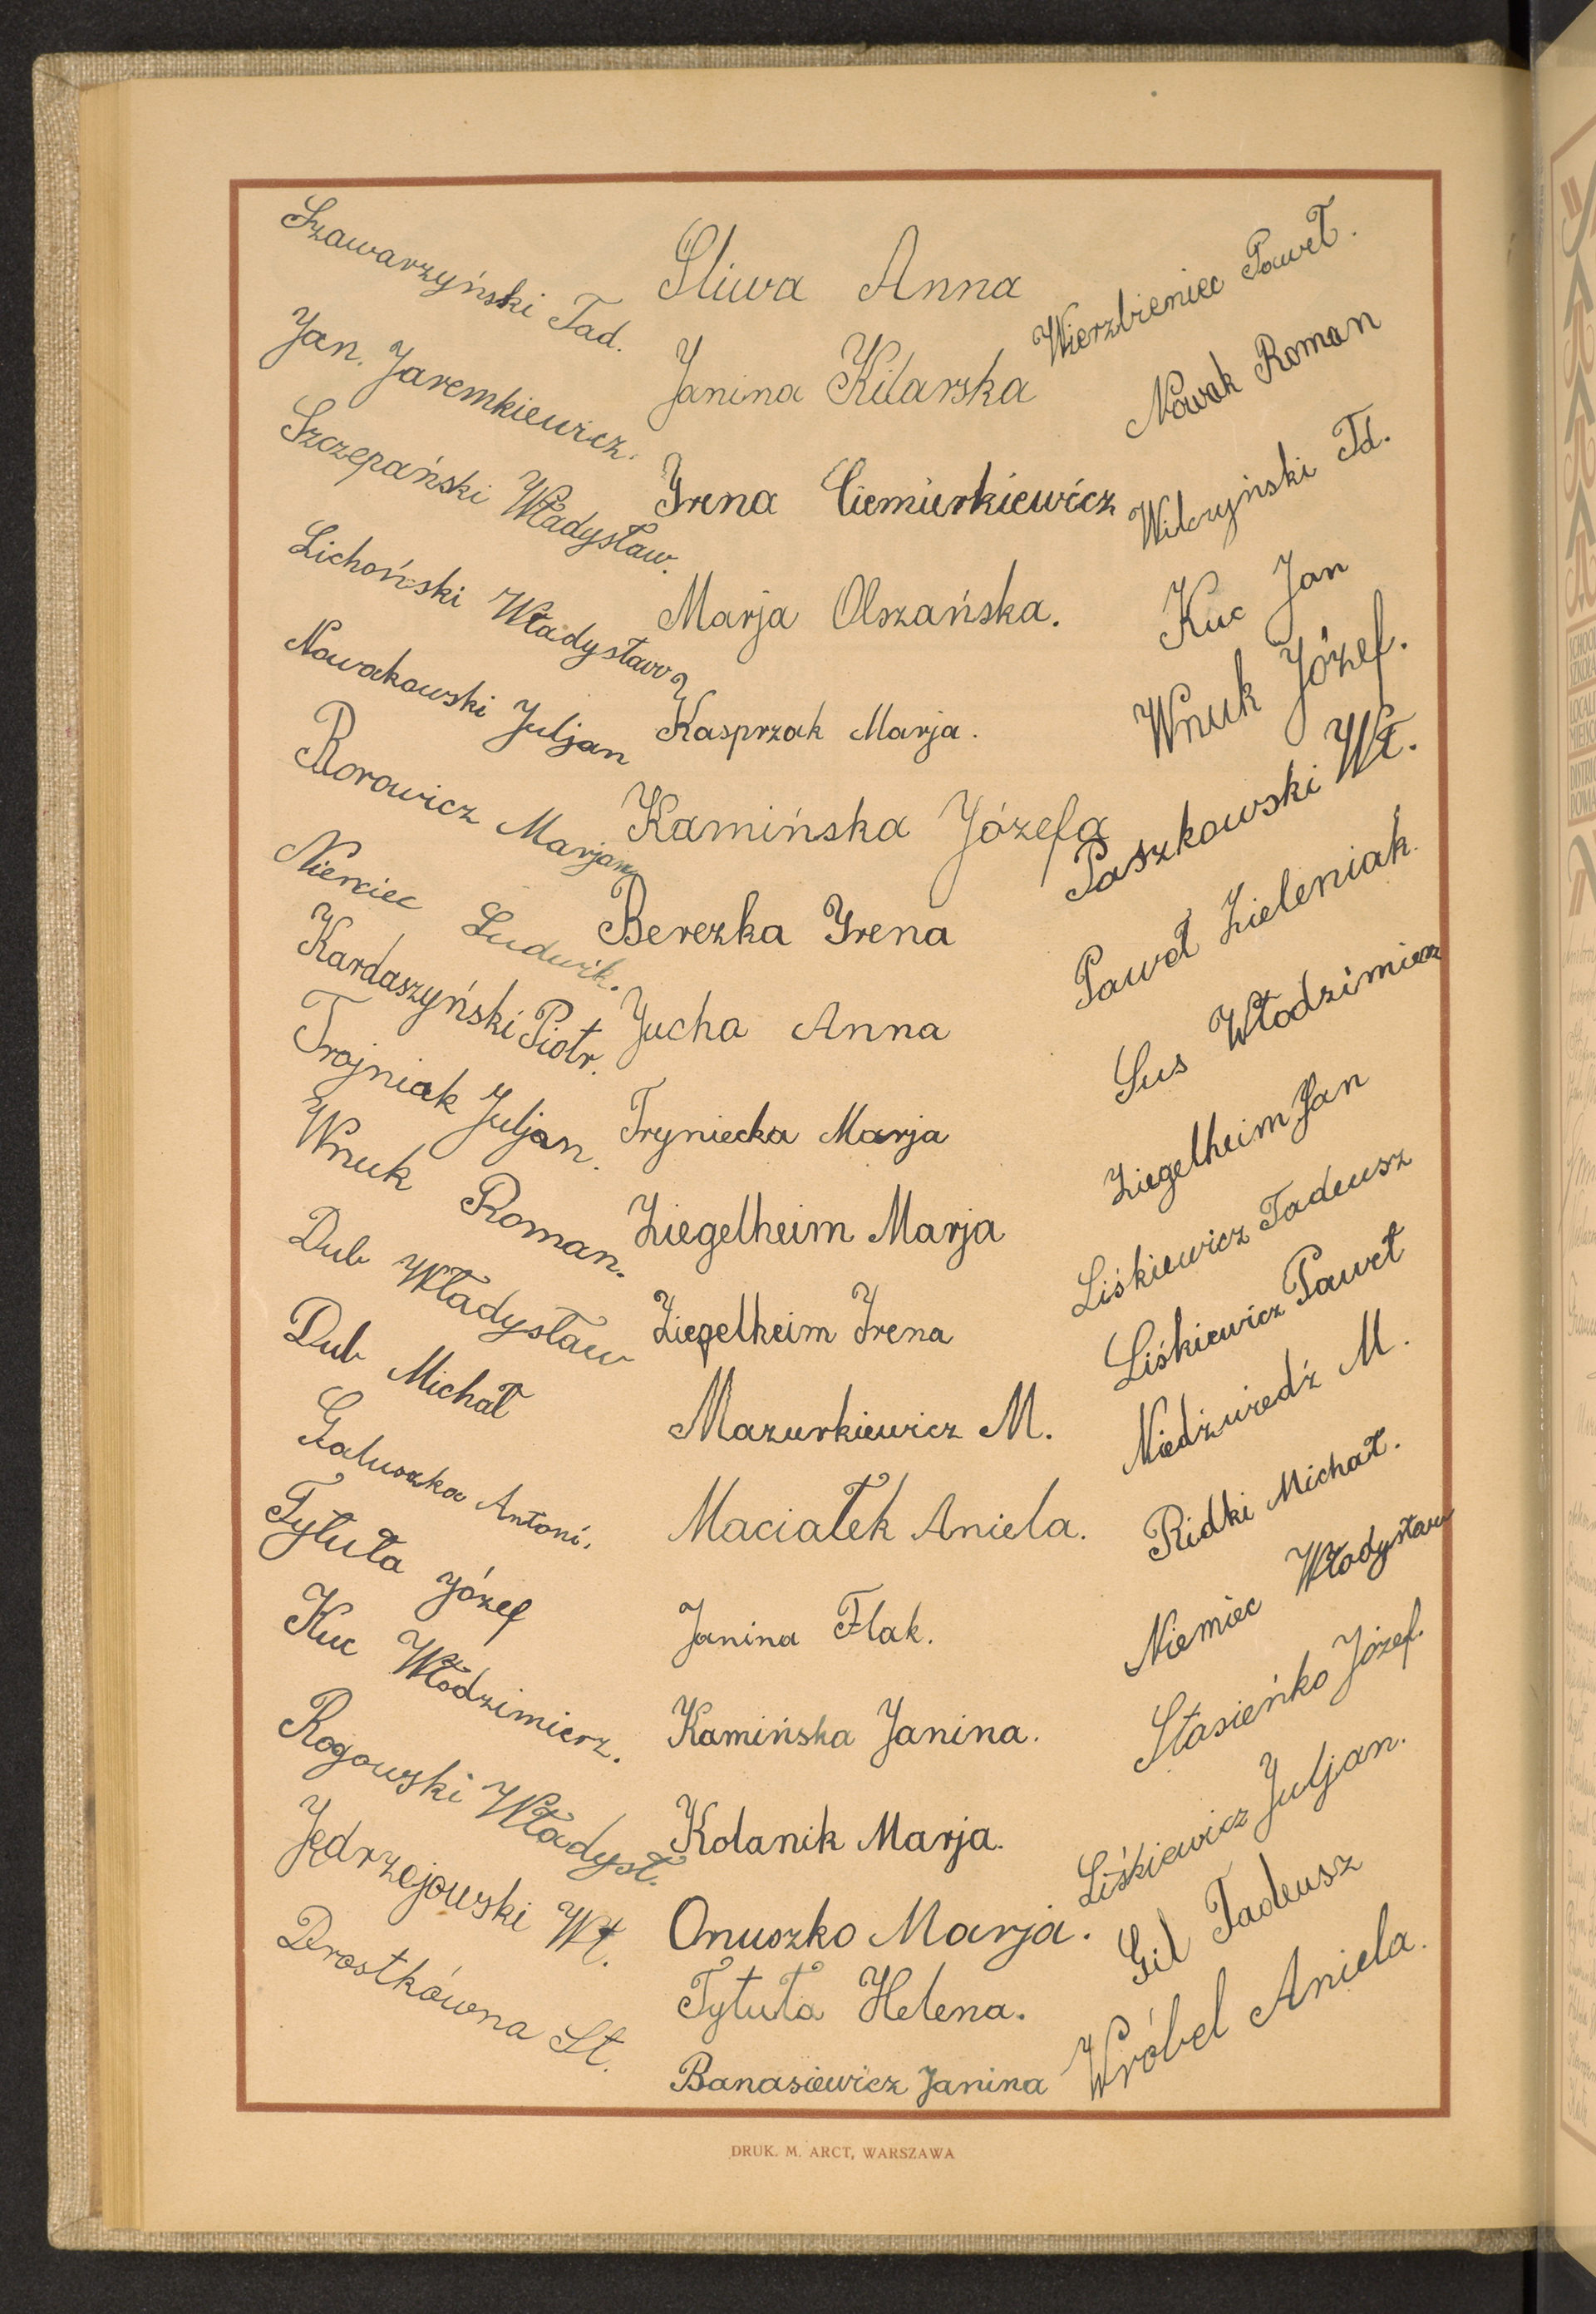 Szawarzyński Tad.
Jan. Jaremkiewicz.
Szczepański Władysław.
Lichoński Władysław
Nowakowski Juljan
Borowicz Marjan
Niemiec Ludwik.
Kardaszyński Piotr.
Trojniak Juljan.
Wnuk Roman.
Dub Władysław
Dub Michał
Galuszka Antoni.
Tytuła Józef
Kuc Włodzimierz.
Rogowski Władysł.
Jędrzejowski Wł.
Drostkówna St.
Śliwa Anna
Janina Kilarska
Irena Ciemierkiewicz
Marja Olszańska.
Kasprzak Marja.
Kamińska Józefa
Berezka Irena
Jucha Anna
Tryniecka Marja
Ziegelheim Marja
Ziegelheim Irena
Mazurkiewicz M.
Maciałek Aniela.
Janina Flak.
Kamińska Janina.
Kolanik Marja.
Onuszko Marja.
Tytuła Helena.
Banasiewicz Janina
Wierzbieniec Paweł.
Nowak Roman
Wilczyński Td.
Kuc Jan
Wnuk Józef.
Paszkowski Wł.
Paweł Zieleniak.
Sus Włodzimierz
Ziegelheim Jan
Liśkiewicz Tadeusz
Liśkiewicz Paweł
Niedźwiedź M.
Ridki Michał.
Niemiec Władysław
Stasieńko Józef.
Liśkiewicz Juljan.
Gil Tadeusz
Wróbel Aniela.
DRUK. M. ARCT, WARSZAWA